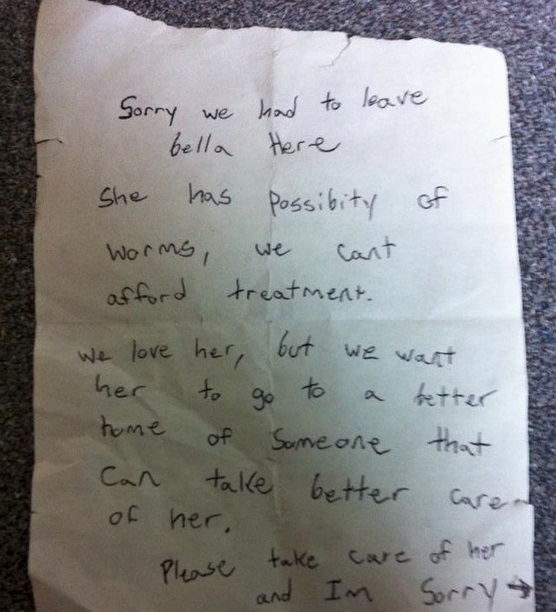 Sorry we had to leave
bella Here
She has possibity of
worms, we cant
afford treatment.
we love her, but we want
her to go to a better
home of someone that
can take better care
of her.
Please take care of her
and Im Sorry →